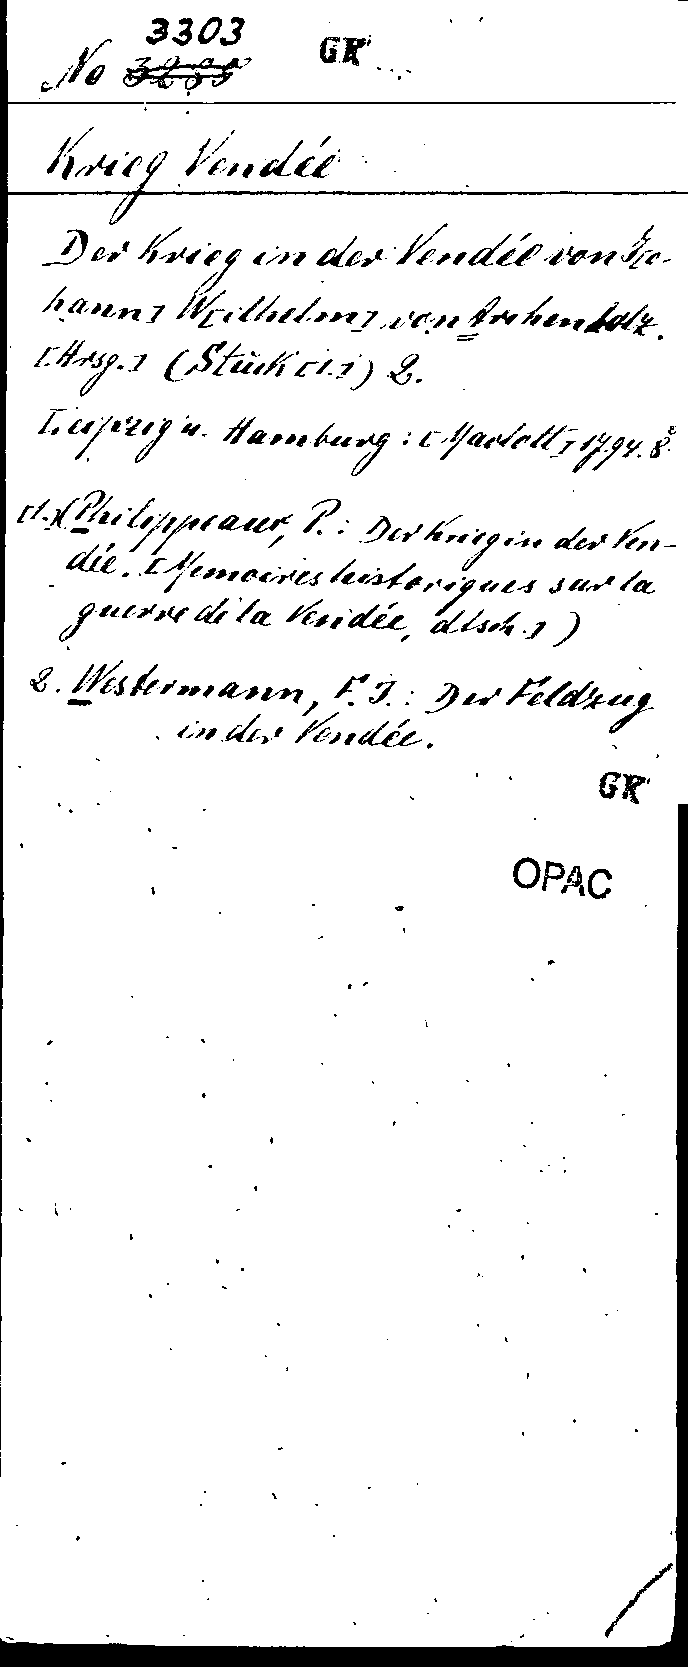 3303
No 3255 GK
Krieg Vendée
Der Krieg in der Vendée von Jo-
hann] W[ilhelm] von Archenholz.
[Hrsg.] (Stück [1.]) 2.
Leipzig u. Hamburg: [Martott] 1794. 8°
[1.] (Philippeaux, P.: Der Krieg in der Ven-
dée. [Memoires historiques sur la
guerre de la Vendée, dtsch.])
2. Westermann, F. J.: Der Feldzug
in der Vendée.
GK
OPAC